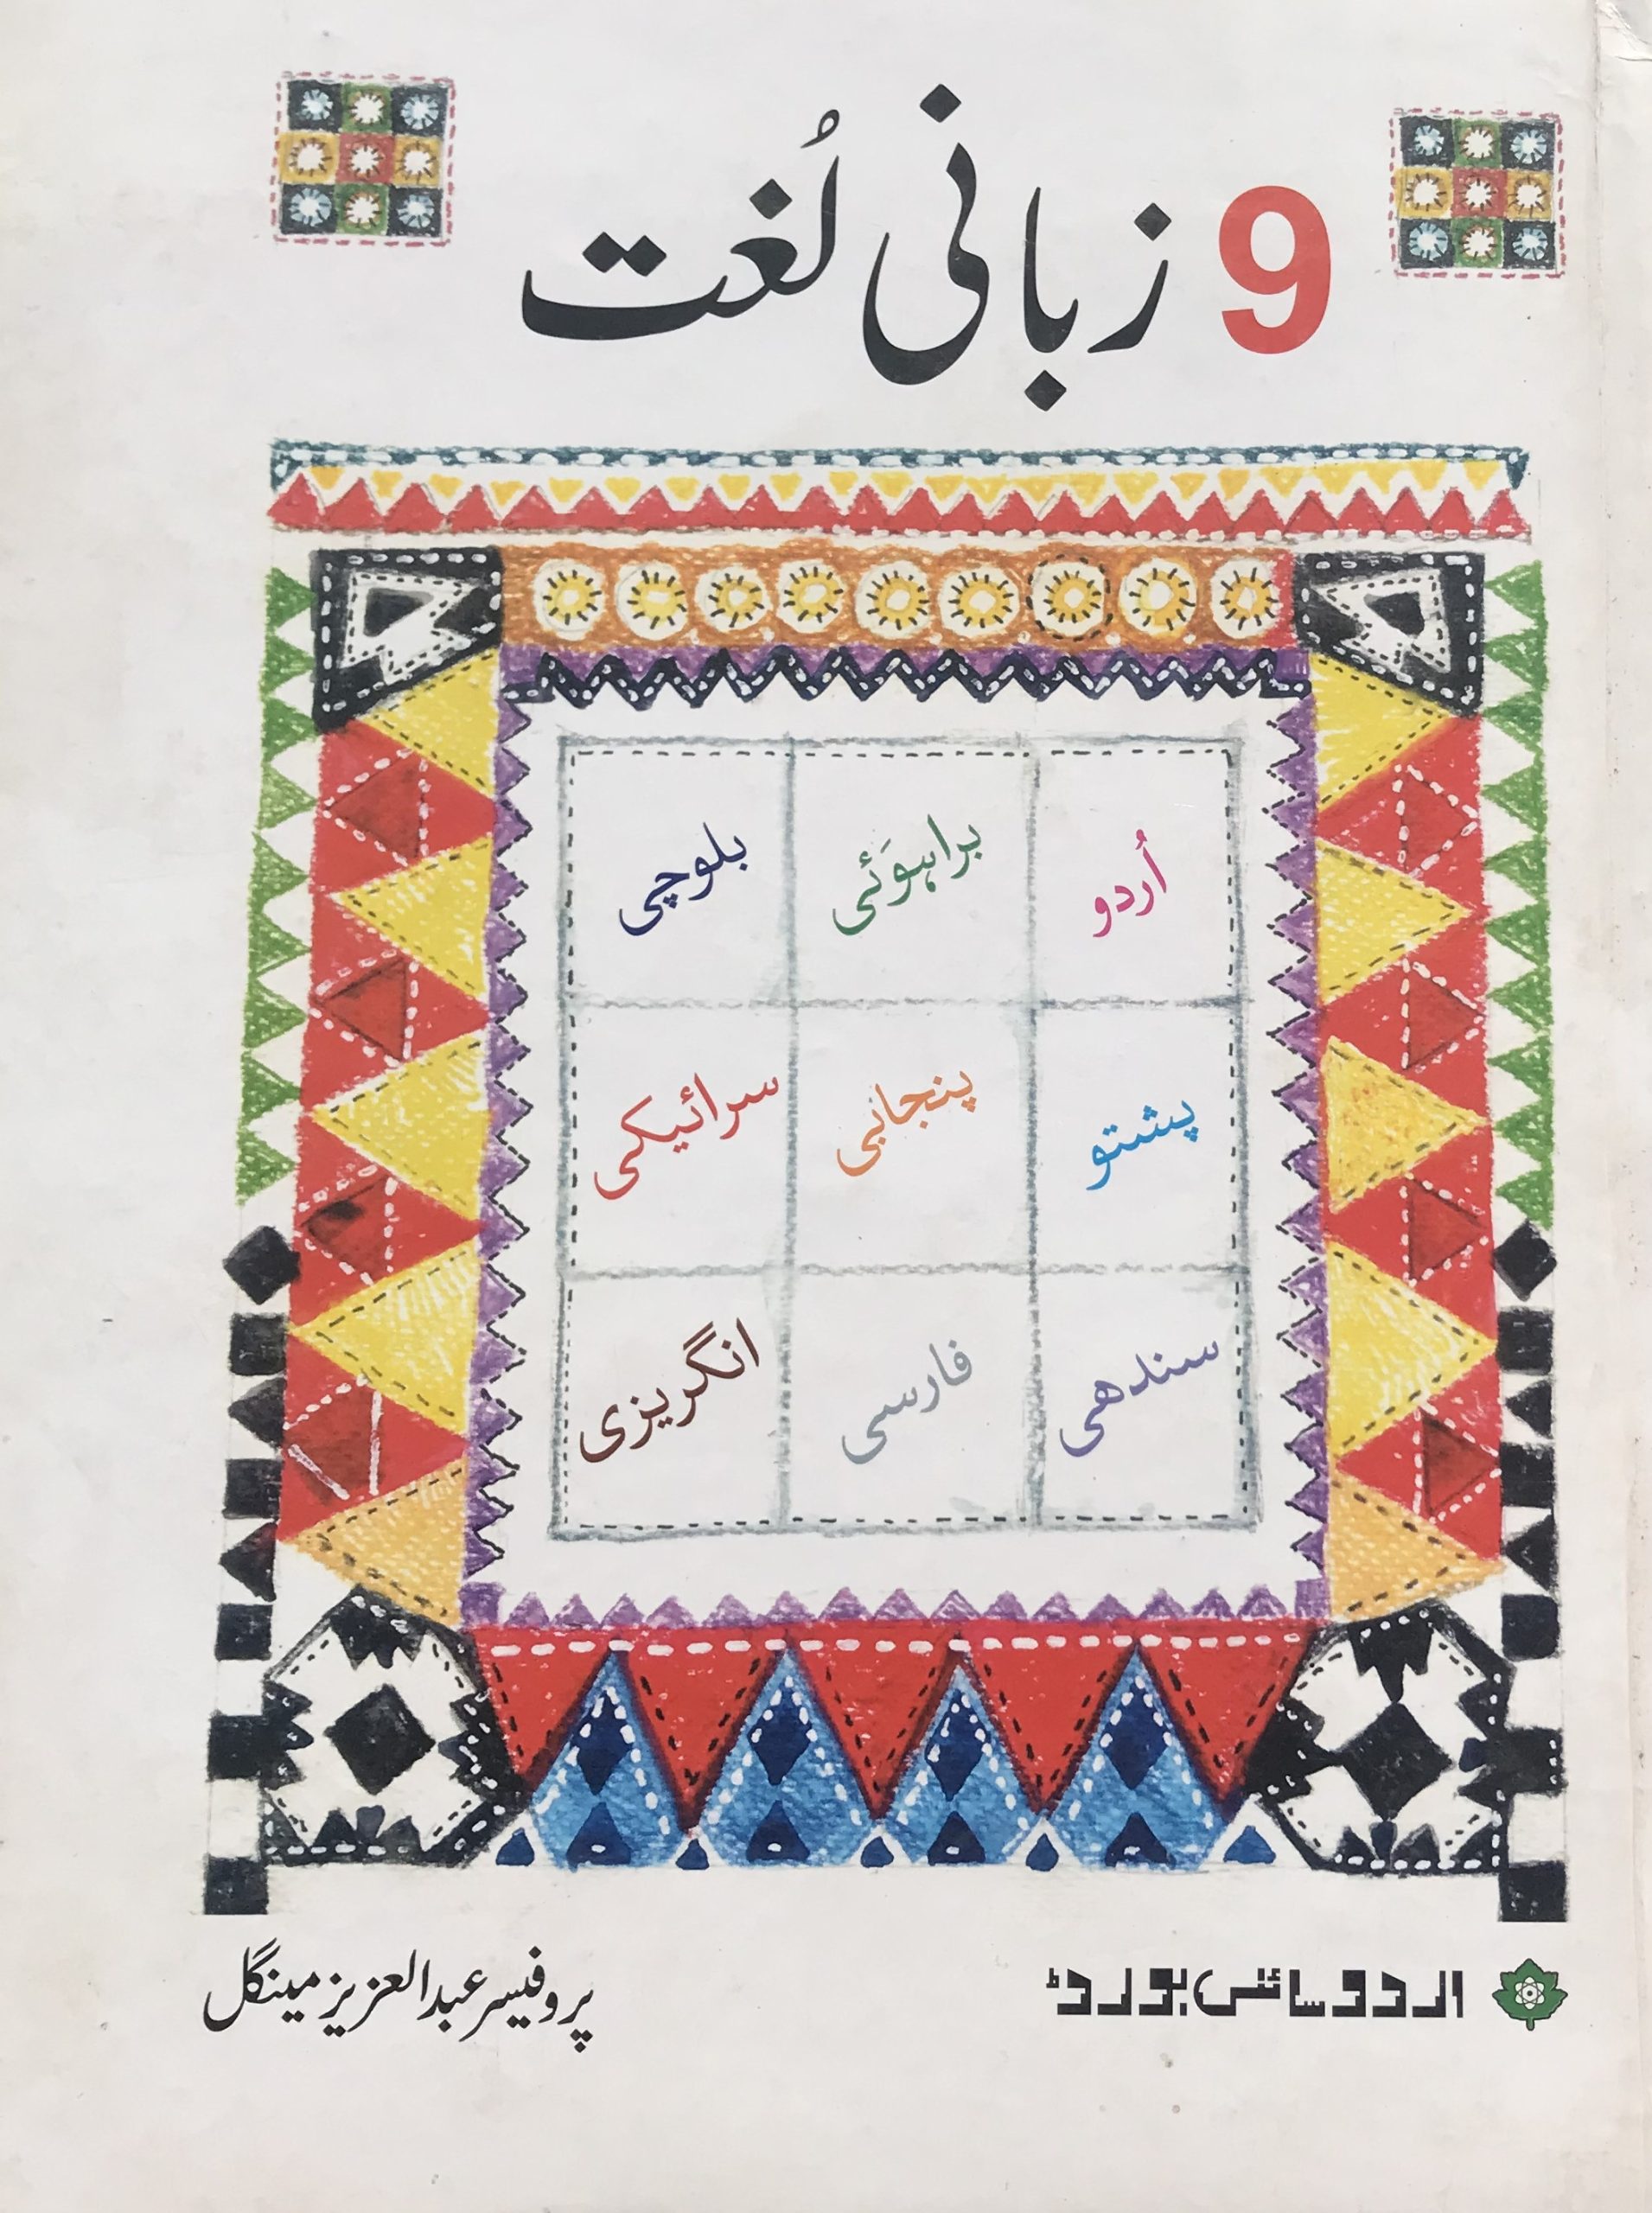 9 زبانی لُغت
اُردو براہوَئی بلوچی
پشتو پنجابی سرائیکی
سندھی فارسی انگریزی
اردو سائنس بورڈ
پروفیسر عبدالعزیز مینگل